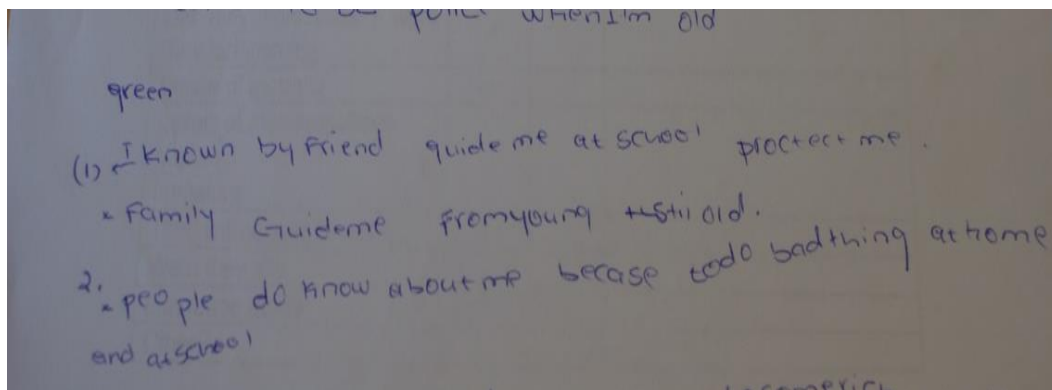 to be police when I'm old
green
(1) - I known by friend guide me at school proctect me.
* Family Guideme from young still old.
2.
* people do know about me becase todo bad thing at home
and at school